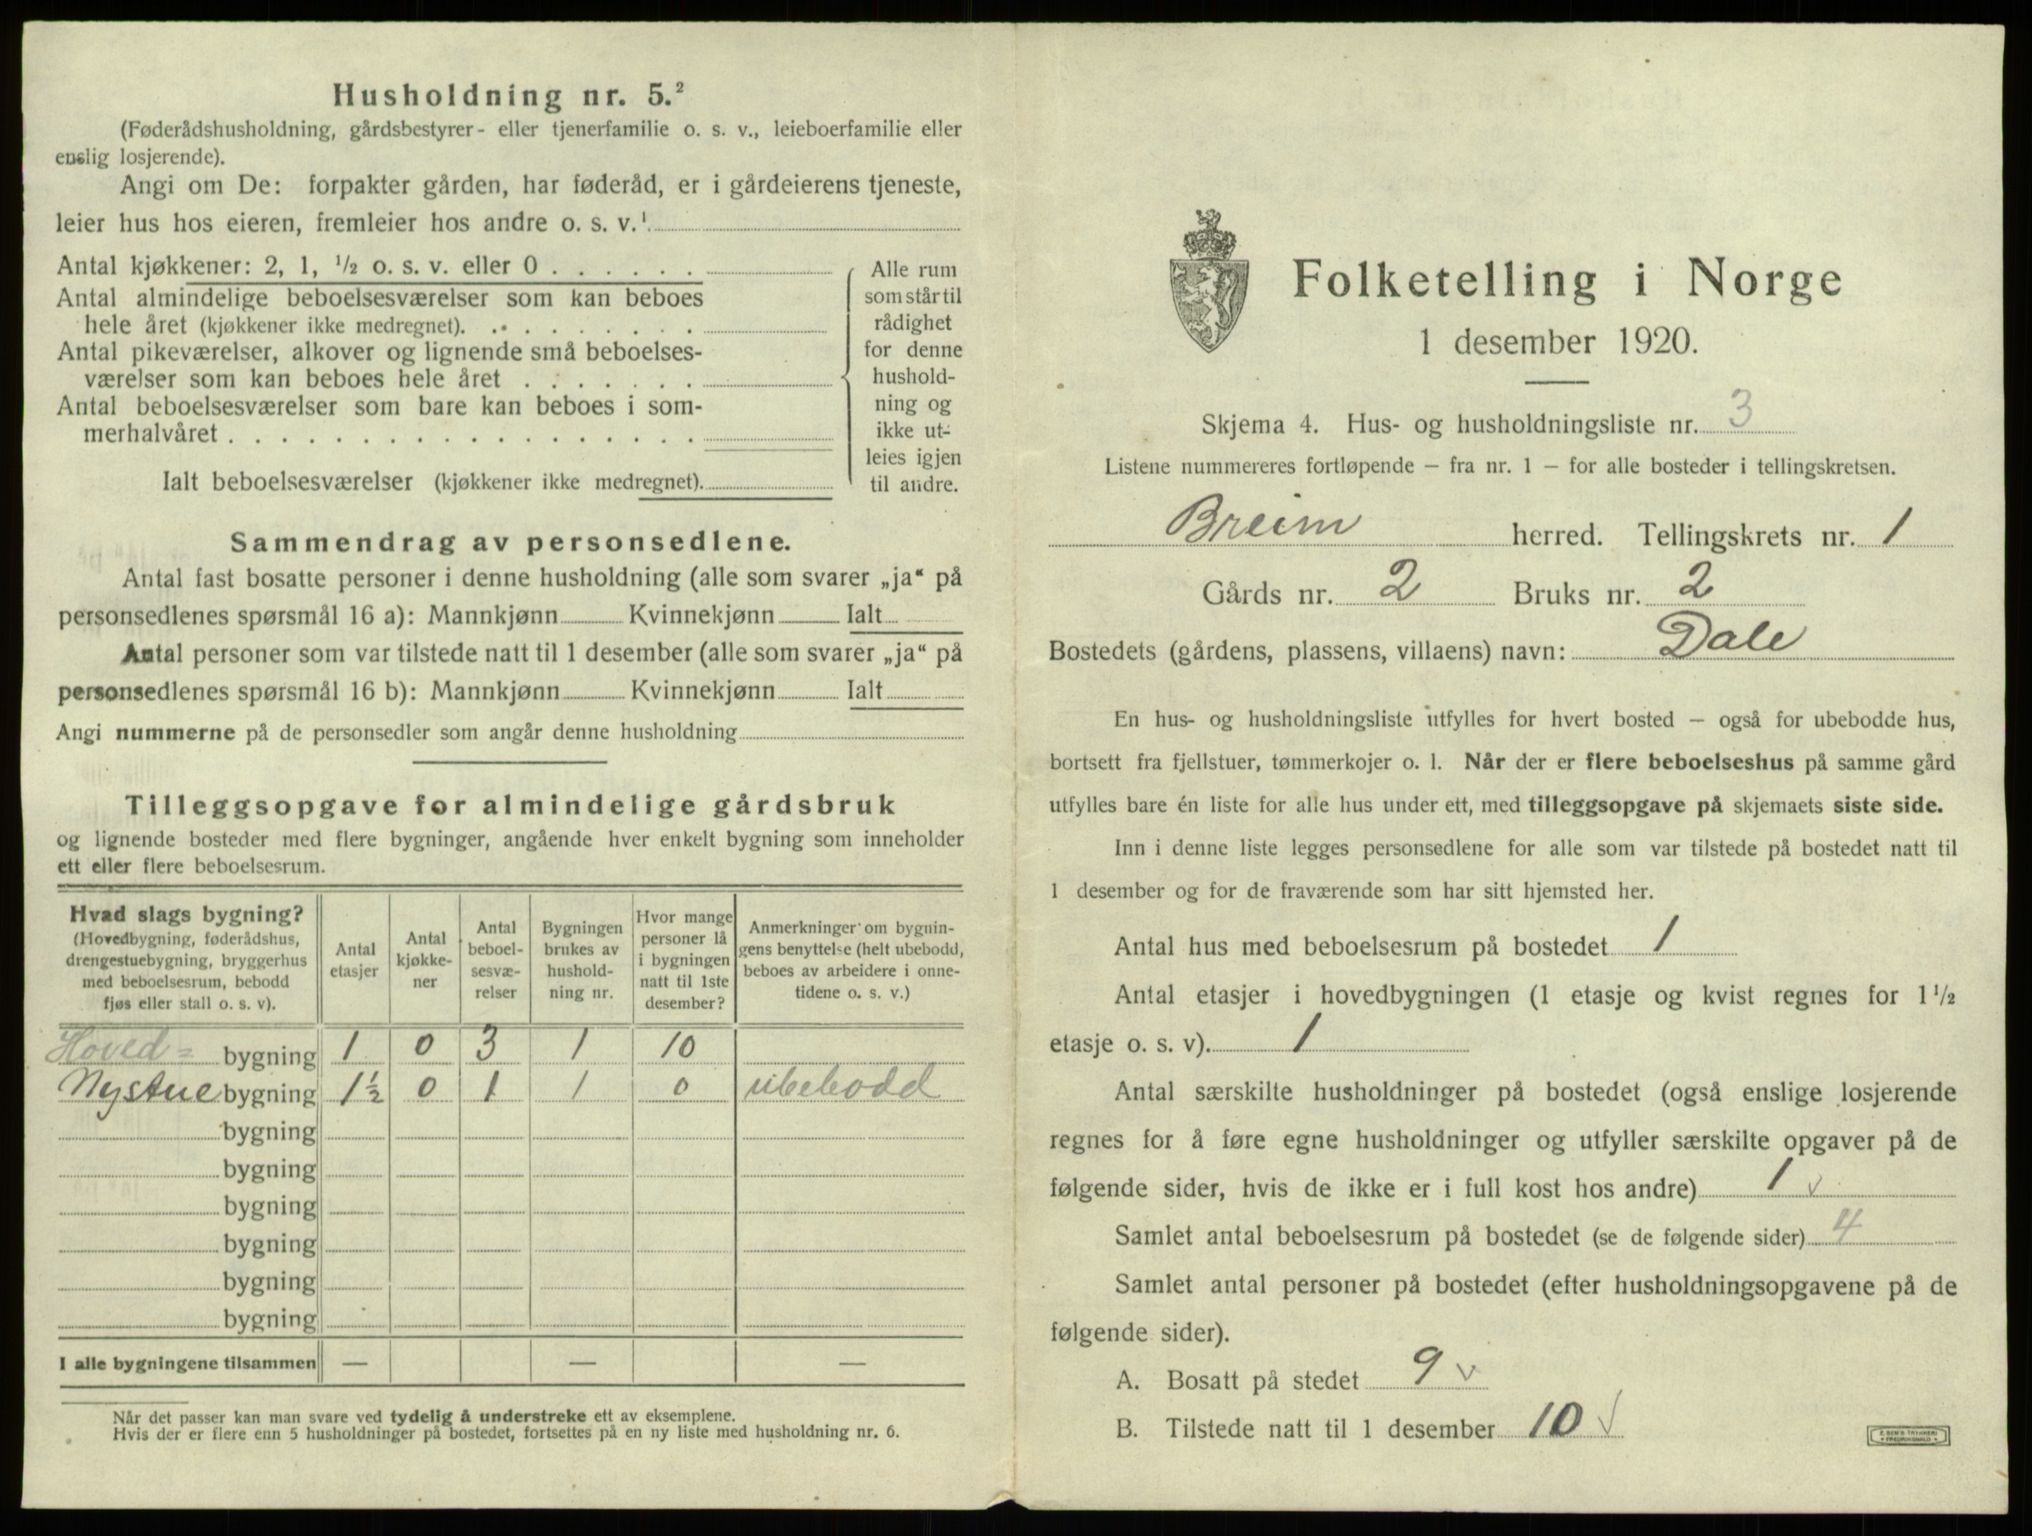 Husholdning nr. 5.²
(Føderådshusholdning, gårdsbestyrer- eller tjenerfamilie o. s. v., leieboerfamilie eller
enslig losjerende).
Angi om De: forpakter gården, har føderåd, er i gårdeierens tjeneste,
leier hus hos eieren, fremleier hos andre o. s. v.¹
Antal kjøkkener: 2, 1, ½ o. s. v. eller 0
Antal almindelige beboelsesværelser som kan beboes
hele året (kjøkkener ikke medregnet).
Antal pikeværelser, alkover og lignende små beboelses-
værelser som kan beboes hele året
Antal beboelsesværelser som bare kan beboes i som-
merhalvåret
Ialt beboelsesværelser (kjøkkener ikke medregnet).
Alle rum
som står til
rådighet
for denne
hushold-
ning og
ikke ut-
leies igjen
til andre.
Sammendrag av personsedlene.
Antal fast bosatte personer i denne husholdning (alle som svarer „ja“ på
personsedlenes spørsmål 16 a): Mannkjønn Kvinnekjønn Ialt
Antal personer som var tilstede natt til 1 desember (alle som svarer „ja“ på
personsedlenes spørsmål 16 b): Mannkjønn Kvinnekjønn Ialt
Angi nummerne på de personsedler som angår denne husholdning
Tilleggsopgave for almindelige gårdsbruk
og lignende bosteder med flere bygninger, angående hver enkelt bygning som inneholder
ett eller flere beboelsesrum.
Hvad slags bygning?
(Hovedbygning, føderådshus,
drengestuebygning, bryggerhus
med beboelsesrum, bebodd
fjøs eller stall o. s. v).
Antal
etasjer
Antal
kjøkke-
ner
Antal
beboel-
sesvæ-
relser
Bygningen
brukes av
hushold-
ning nr.
Hvor mange
personer lå
i bygningen
natt til 1ste
desember?
Anmerkninger om bygnin-
gens benyttelse (helt ubebodd,
beboes av arbeidere i onne-
tidene o. s. v.)
Hoved= bygning 1 0 3 1 10
Nystue bygning 1½ 0 1 1 0 ubebodd
bygning
bygning
bygning
bygning
bygning
bygning
I alle bygningene tilsammen — — —
Når det passer kan man svare ved tydelig å understreke ett av eksemplene.
Hvis der er flere enn 5 husholdninger på bostedet, fortsettes på en ny liste med husholdning nr. 6.
Folketelling i Norge
1 desember 1920.
Skjema 4. Hus- og husholdningsliste nr. 3
Listene nummereres fortløpende — fra nr. 1 — for alle bosteder i tellingskretsen.
Breim herred. Tellingskrets nr. 1
Gårds nr. 2 Bruks nr. 2
Bostedets (gårdens, plassens, villaens) navn: Dale
En hus- og husholdningsliste utfylles for hvert bosted — også for ubebodde hus,
bortsett fra fjellstuer, tømmerkojer o. l. Når der er flere beboelseshus på samme gård
utfylles bare én liste for alle hus under ett, med tilleggsopgave på skjemaets siste side.
Inn i denne liste legges personsedlene for alle som var tilstede på bostedet natt til
1 desember og for de fraværende som har sitt hjemsted her.
Antal hus med beboelsesrum på bostedet 1
Antal etasjer i hovedbygningen (1 etasje og kvist regnes for 1½
etasje o. s. v). 1
Antal særskilte husholdninger på bostedet (også enslige losjerende
regnes for å føre egne husholdninger og utfyller særskilte opgaver på de
følgende sider, hvis de ikke er i full kost hos andre) 1 v
Samlet antal beboelsesrum på bostedet (se de følgende sider) 4
Samlet antal personer på bostedet (efter husholdningsopgavene på de
følgende sider).
A. Bosatt på stedet 9 v
B. Tilstede natt til 1 desember 10 √